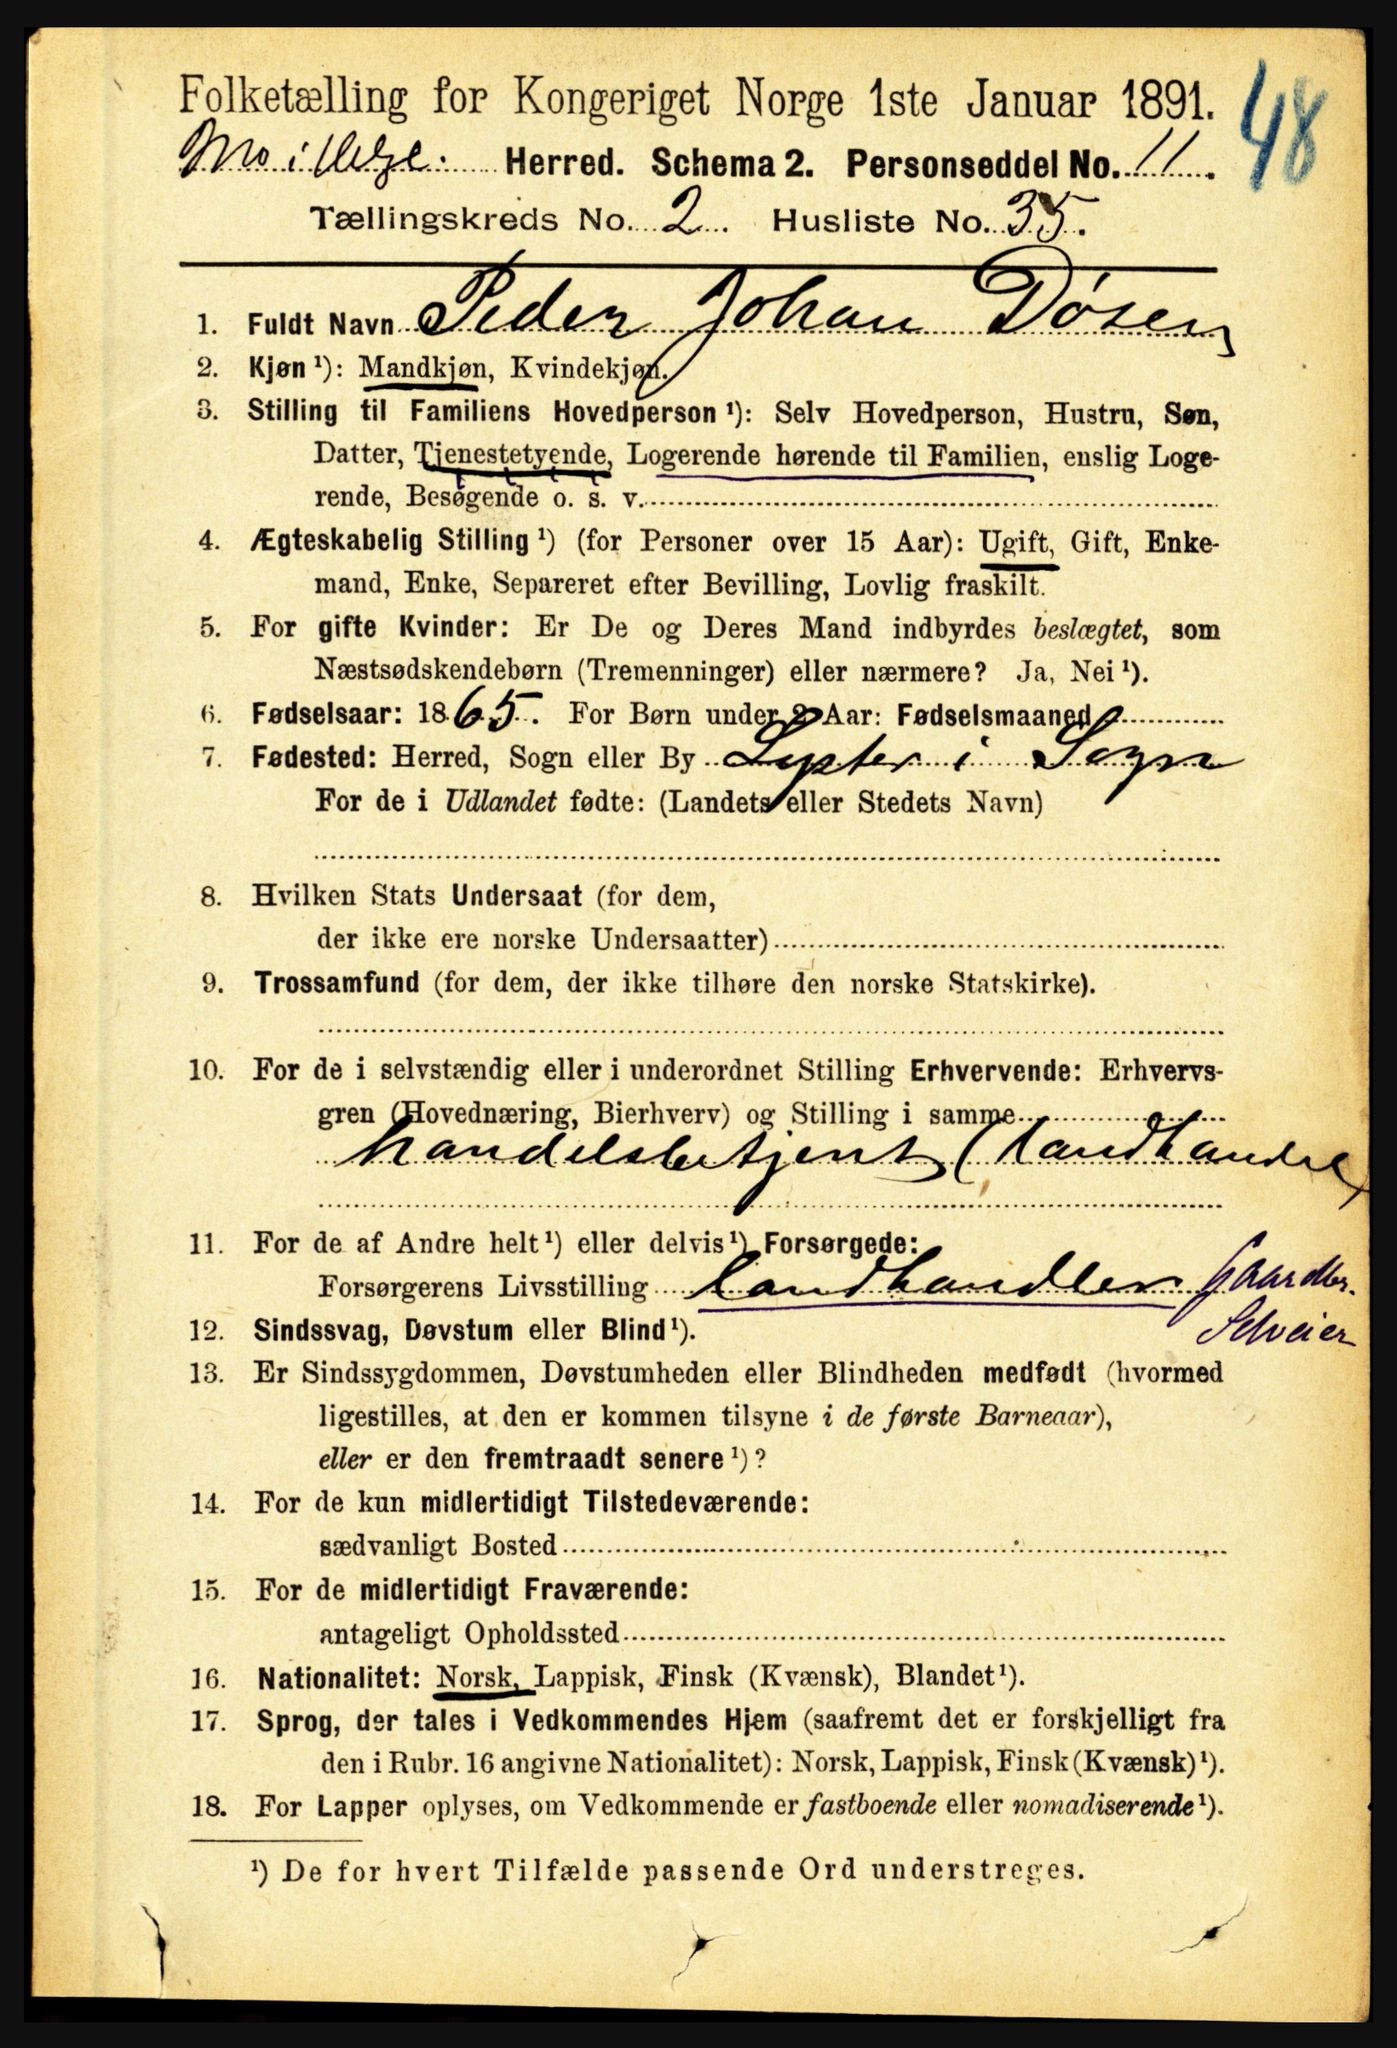 Folketælling for Kongeriget Norge 1ste Januar 1891.
48
Mo i Helgel. Herred. Schema 2. Personseddel No. 11.
Tællingskreds No. 2. Husliste No. 35.
1. Fuldt Navn Peder Johan Døsen
2. Kjøn ¹): Mandkjøn, Kvindekjøn.
3. Stilling til Familiens Hovedperson ¹): Selv Hovedperson, Hustru, Søn,
Datter, Tjenestetyende, Logerende hørende til Familien, enslig Loge-
rende, Besøgende o. s. v.
4. Ægteskabelig Stilling ¹) (for Personer over 15 Aar): Ugift, Gift, Enke-
mand, Enke, Separeret efter Bevilling, Lovlig fraskilt.
5. For gifte Kvinder: Er De og Deres Mand indbyrdes beslægtet, som
Næstsødskendebørn (Tremenninger) eller nærmere? Ja, Nei ¹).
6. Fødselsaar: 1865. For Børn under 2 Aar: Fødselsmaaned
7. Fødested: Herred, Sogn eller By Lyster i Sogn
For de i Udlandet fødte: (Landets eller Stedets Navn)
8. Hvilken Stats Undersaat (for dem,
der ikke ere norske Undersaatter)
9. Trossamfund (for dem, der ikke tilhøre den norske Statskirke).
10. For de i selvstændig eller i underordnet Stilling Erhvervende: Erhvervs-
gren (Hovednæring, Bierhverv) og Stilling i samme
handelsbetjent (landhandel)
11. For de af Andre helt ¹) eller delvis ¹) Forsørgede:
Forsørgerens Livsstilling landhandler Gaardbr.
Selveier
12. Sindssvag, Døvstum eller Blind ¹).
13. Er Sindssygdommen, Døvstumheden eller Blindheden medfødt (hvormed
ligestilles, at den er kommen tilsyne i de første Barneaar),
eller er den fremtraadt senere ¹)?
14. For de kun midlertidigt Tilstedeværende:
sædvanligt Bosted
15. For de midlertidigt Fraværende:
antageligt Opholdssted
16. Nationalitet: Norsk, Lappisk, Finsk (Kvænsk), Blandet ¹).
17. Sprog, der tales i Vedkommendes Hjem (saafremt det er forskjelligt fra
den i Rubr. 16 angivne Nationalitet): Norsk, Lappisk, Finsk (Kvænsk) ¹).
18. For Lapper oplyses, om Vedkommende er fastboende eller nomadiserende ¹).
¹) De for hvert Tilfælde passende Ord understreges.